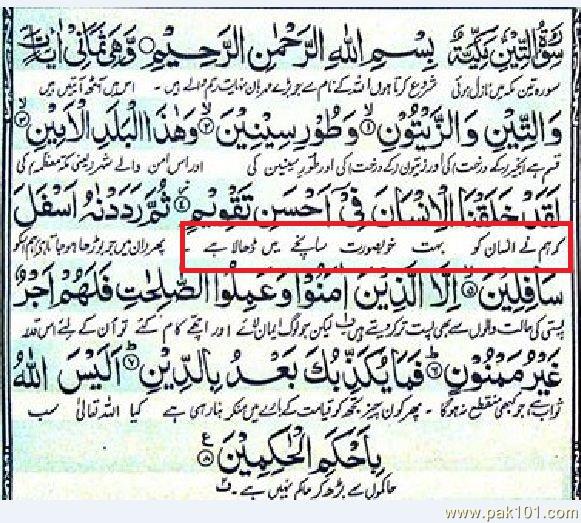 سُوْرَةُ التِّيْنِ مَكِّيَّةٌ بِسْمِ اللهِ الرَّحْمٰنِ الرَّحِيْمِ وَّهِيَ ثَمَانِيْ اٰيَاتٍ
سورہ تین مکہ میں نازل ہوئی شروع کرتا ہوں اللہ کے نام سے جو بڑے مہربان نہایت رحم والے ہیں۔ اس میں آٹھ آیتیں ہیں
وَالتِّيْنِ وَالزَّيْتُوْنِ ۙ۱ وَطُوْرِ سِيْنِيْنَ ۙ۲ وَهٰذَا الْبَلَدِ الْاَمِيْنِ ۙ۳
قسم ہے انجیر کے درخت کی اور زیتون کے درخت کی اور طور سینین کی اور اس امن والے شہر یعنی مکہ معظمہ کی
لَقَدْ خَلَقْنَا الْاِنْسَانَ فِيْٓ اَحْسَنِ تَقْوِيْمٍ ۴ ثُمَّ رَدَدْنٰهُ اَسْفَلَ
کہ ہم نے انسان کو بہت خوبصورت سانچے میں ڈھالا ہے ۔ پھر ان میں جو بوڑھا ہو جاتا ہے ہم اسکو
سَافِلِيْنَ ۵ اِلَّا الَّذِيْنَ اٰمَنُوْا وَعَمِلُوا الصّٰلِحٰتِ فَلَهُمْ اَجْرٌ
پستی کی حالت والوں سے بھی پست تر کر دیتے ہیں لیکن جو لوگ ایمان لائے اور اچھے کام کئے تو ان کے لئے اس قدر
غَيْرُ مَمْنُوْنٍ ۶ فَمَا يُكَذِّبُكَ بَعْدُ بِالدِّيْنِ ۷ اَلَيْسَ اللهُ
ثواب ہے جو کبھی منقطع نہ ہوگا ۔ پھر کون چیز تجھ کو قیامت کے بارے میں منکر بنا رہی ہے کیا اللہ تعالیٰ سب
بِاَحْكَمِ الْحٰكِمِيْنَ ۸
حاکموں سے بڑھ کر حاکم نہیں ہے ۔
www.pak101.com